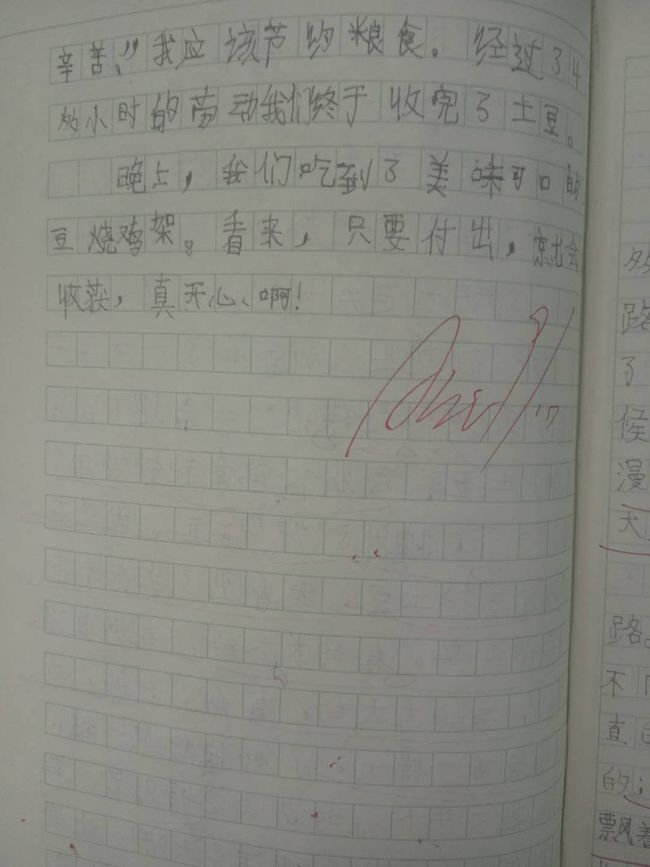 辛苦！”我应该节约粮食。经过34
小时的劳动我们终于收完了土豆。
晚上，我们吃到了美味可口的
豆烧鸡架。看来，只要付出，就会
收获，真开心、啊！
路
了
候
漫
路。
不
直
的；
飘着